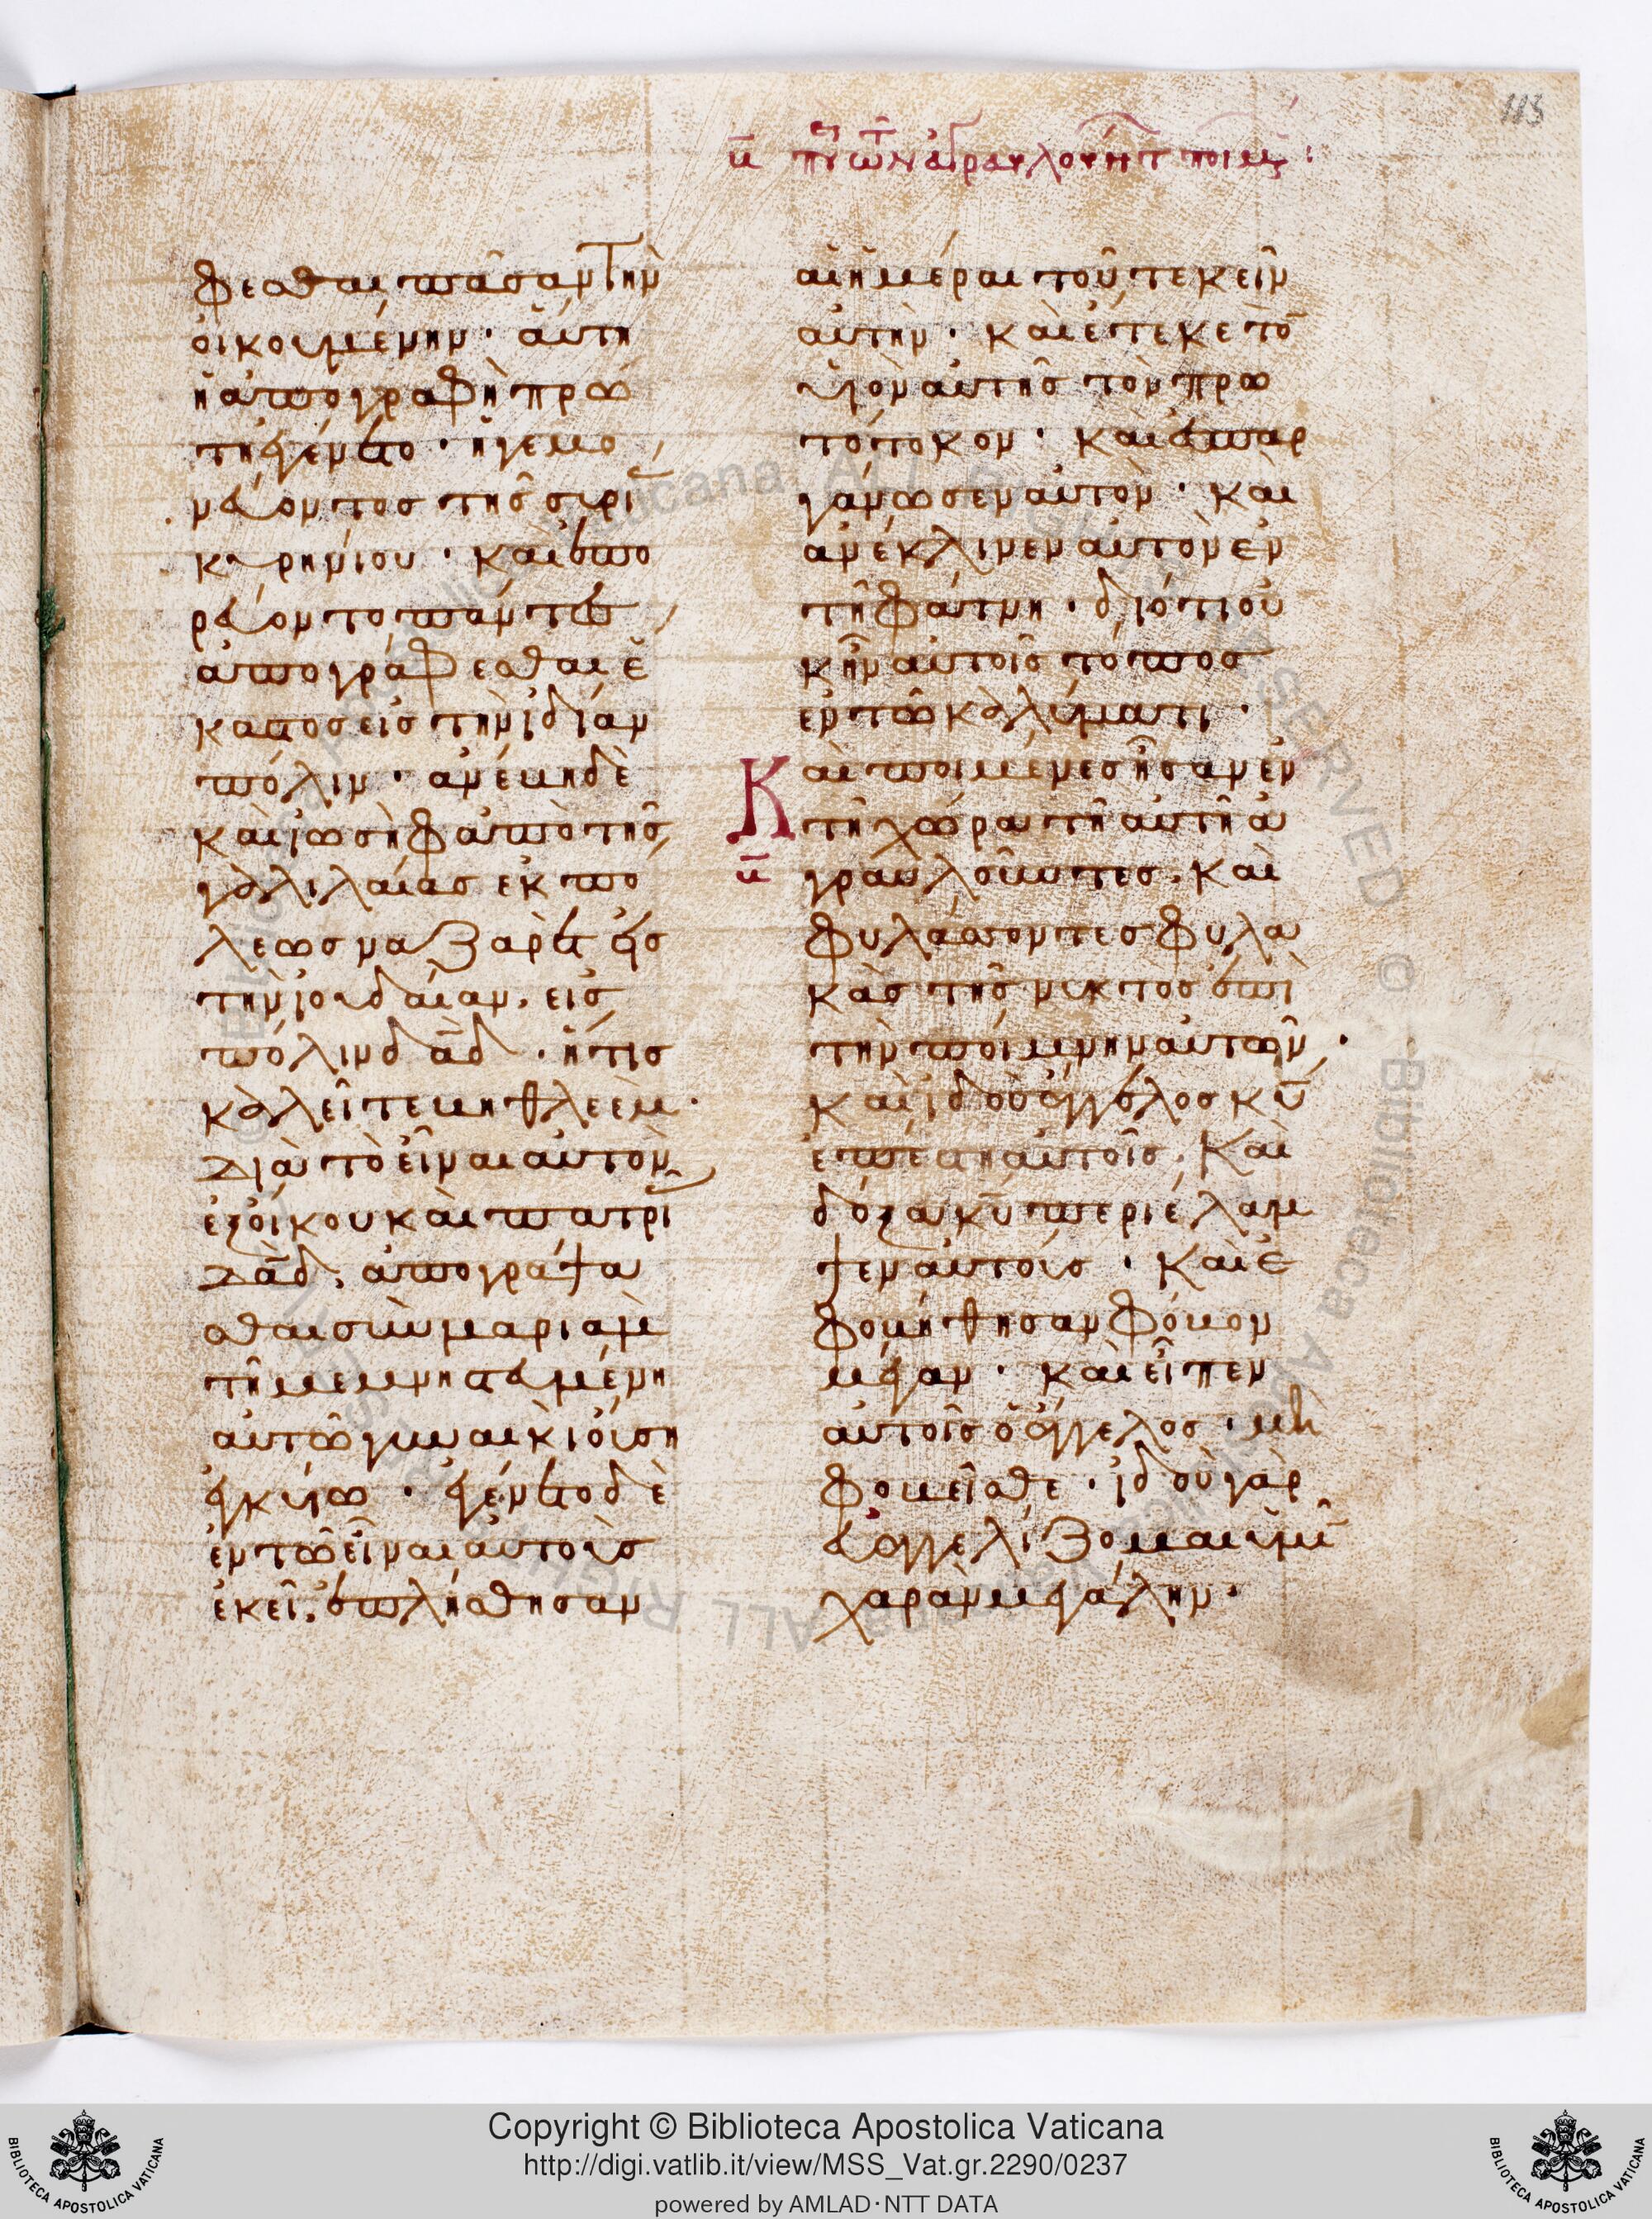 113
β περὶ τῶν ἀγραυλούντ ποιμένων:
φεσθαι πᾶσαν τὴν
οἰκουμένην· αὕτη
ἡ ἀπογραφὴ πρώ
τη ἐγένετο· ἡγεμο
νεύοντος τῆς συρίας
κυρηνίου· καὶ ἐπο
ρεύοντο πάντες
ἀπογράφεσθαι ἕ
καστος εἰς τὴν ἰδίαν
πόλιν· ἀνέβη δὲ
καὶ ἰωσὴφ ἀπὸ τῆς
γαλιλαίας ἐκ πό
λεως ναζαρὲτ εἰς
τὴν ἰουδαίαν, εἰς
πόλιν δᾱδ· ἥτις
καλεῖτε βηθλεὲμ·
διὰ τὸ εἶναι αὐτὸν
ἐξ οἴκου καὶ πατριᾶς
δᾱδ, ἀπογράψα
σθαι σὺν μαριὰμ
τῇ μεμνηστευμένη
αὐτῶ γυναικὶ οὔση
ἐγκύω· ἐγένετο δὲ
ἐν τῶ εἶναι αὐτοὺς
ἐκεῖ, ἐπλήσθησαν
αἱ ἡμέραι τοῦ τεκεῖν
αὐτήν· καὶ ἔτεκε τὸν
υἱὸν αὐτῆς τὸν πρω
τότοκον· καὶ ἐσπαρ
γάνωσεν αὐτὸν· καὶ
ἀνέκλινεν αὐτὸν ἐν
τῇ φάτνη· διότι οὐ
κ ἦν αὐτοῖς τόπος
ἐν τῶ καλύματι·
Καὶ ποιμένες ἦσαν ἐν
τῇ χώρα τῇ αὐτῇ ἀ
β γραυλοῦντες, καὶ
φυλάσσοντες φυλα
κὰς τῆς νυκτὸς ἐπὶ
τὴν ποίμνην αὐτῶν·
καὶ ἰδοὺ ἄγγελος κ̄ῡ
ἐπέστη αὐτοῖς, καὶ
δόξα κ̄ῡ περιέλαμ
ψεν αὐτούς· καὶ ἐ
φοβήθησαν φόβον
μέγαν· καὶ εἶπεν
αὐτοῖς ὁ ἄγγελος· μὴ
φοβεῖσθε· ἰδοὺ γὰρ
εὐαγγελίζομαι ὑμῖν
χαρὰν μεγάλην·
Copyright © Biblioteca Apostolica Vaticana
http://digi.vatlib.it/view/MSS_Vat.gr.2290/0237
powered by AMLAD·NTT DATA
BIBLIOTECA APOSTOLICA VATICANA
BIBLIOTECA APOSTOLICA VATICANA